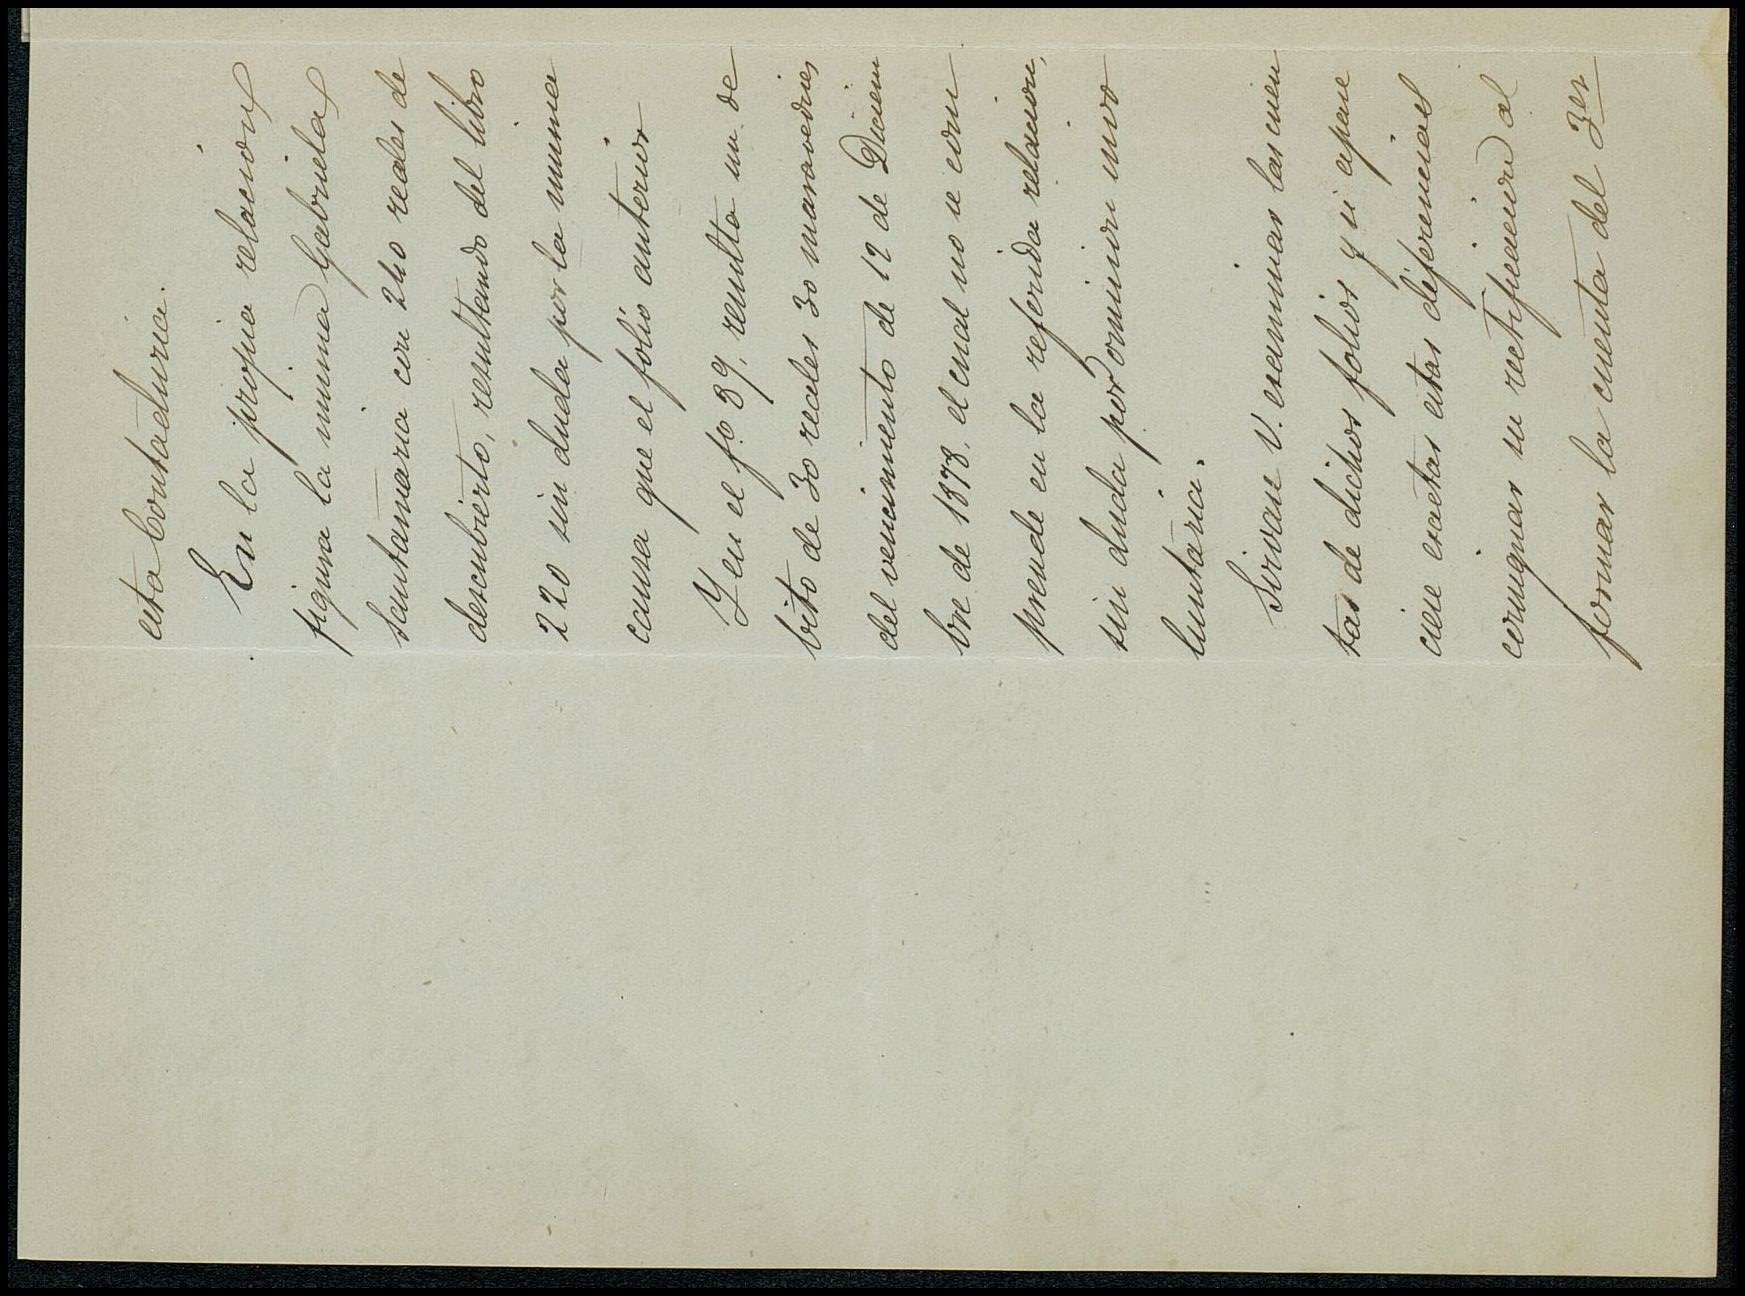 esta Contaduria.
En la propia relacion
figura la misma Gabriela
Santamaria con 240 reales de
descubierto, resultando del libro
220 sin duda por la misma
causa que el folio anterior
Y en el fo 89, resulta un de
bito de 30 reales 30 maravedises
del vencimiento de 12 de Diciem
bre de 1878, el cual no se com
prende en la referida relacion,
sin duda por omision invo
luntaria.
Sirvase V. examinar las cuen
tas de dichos folios y si apare
ciese exactas estas diferencias
consignar su rectificacion al
formar la cuenta del 3er